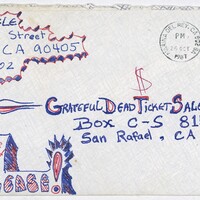 SLE
Street
CA 90405
02
PM
1987
$
GRATEFUL DEAD TICKET SALE
BOX C-S 81
SAN RAFAEL, CA
PLEASE!